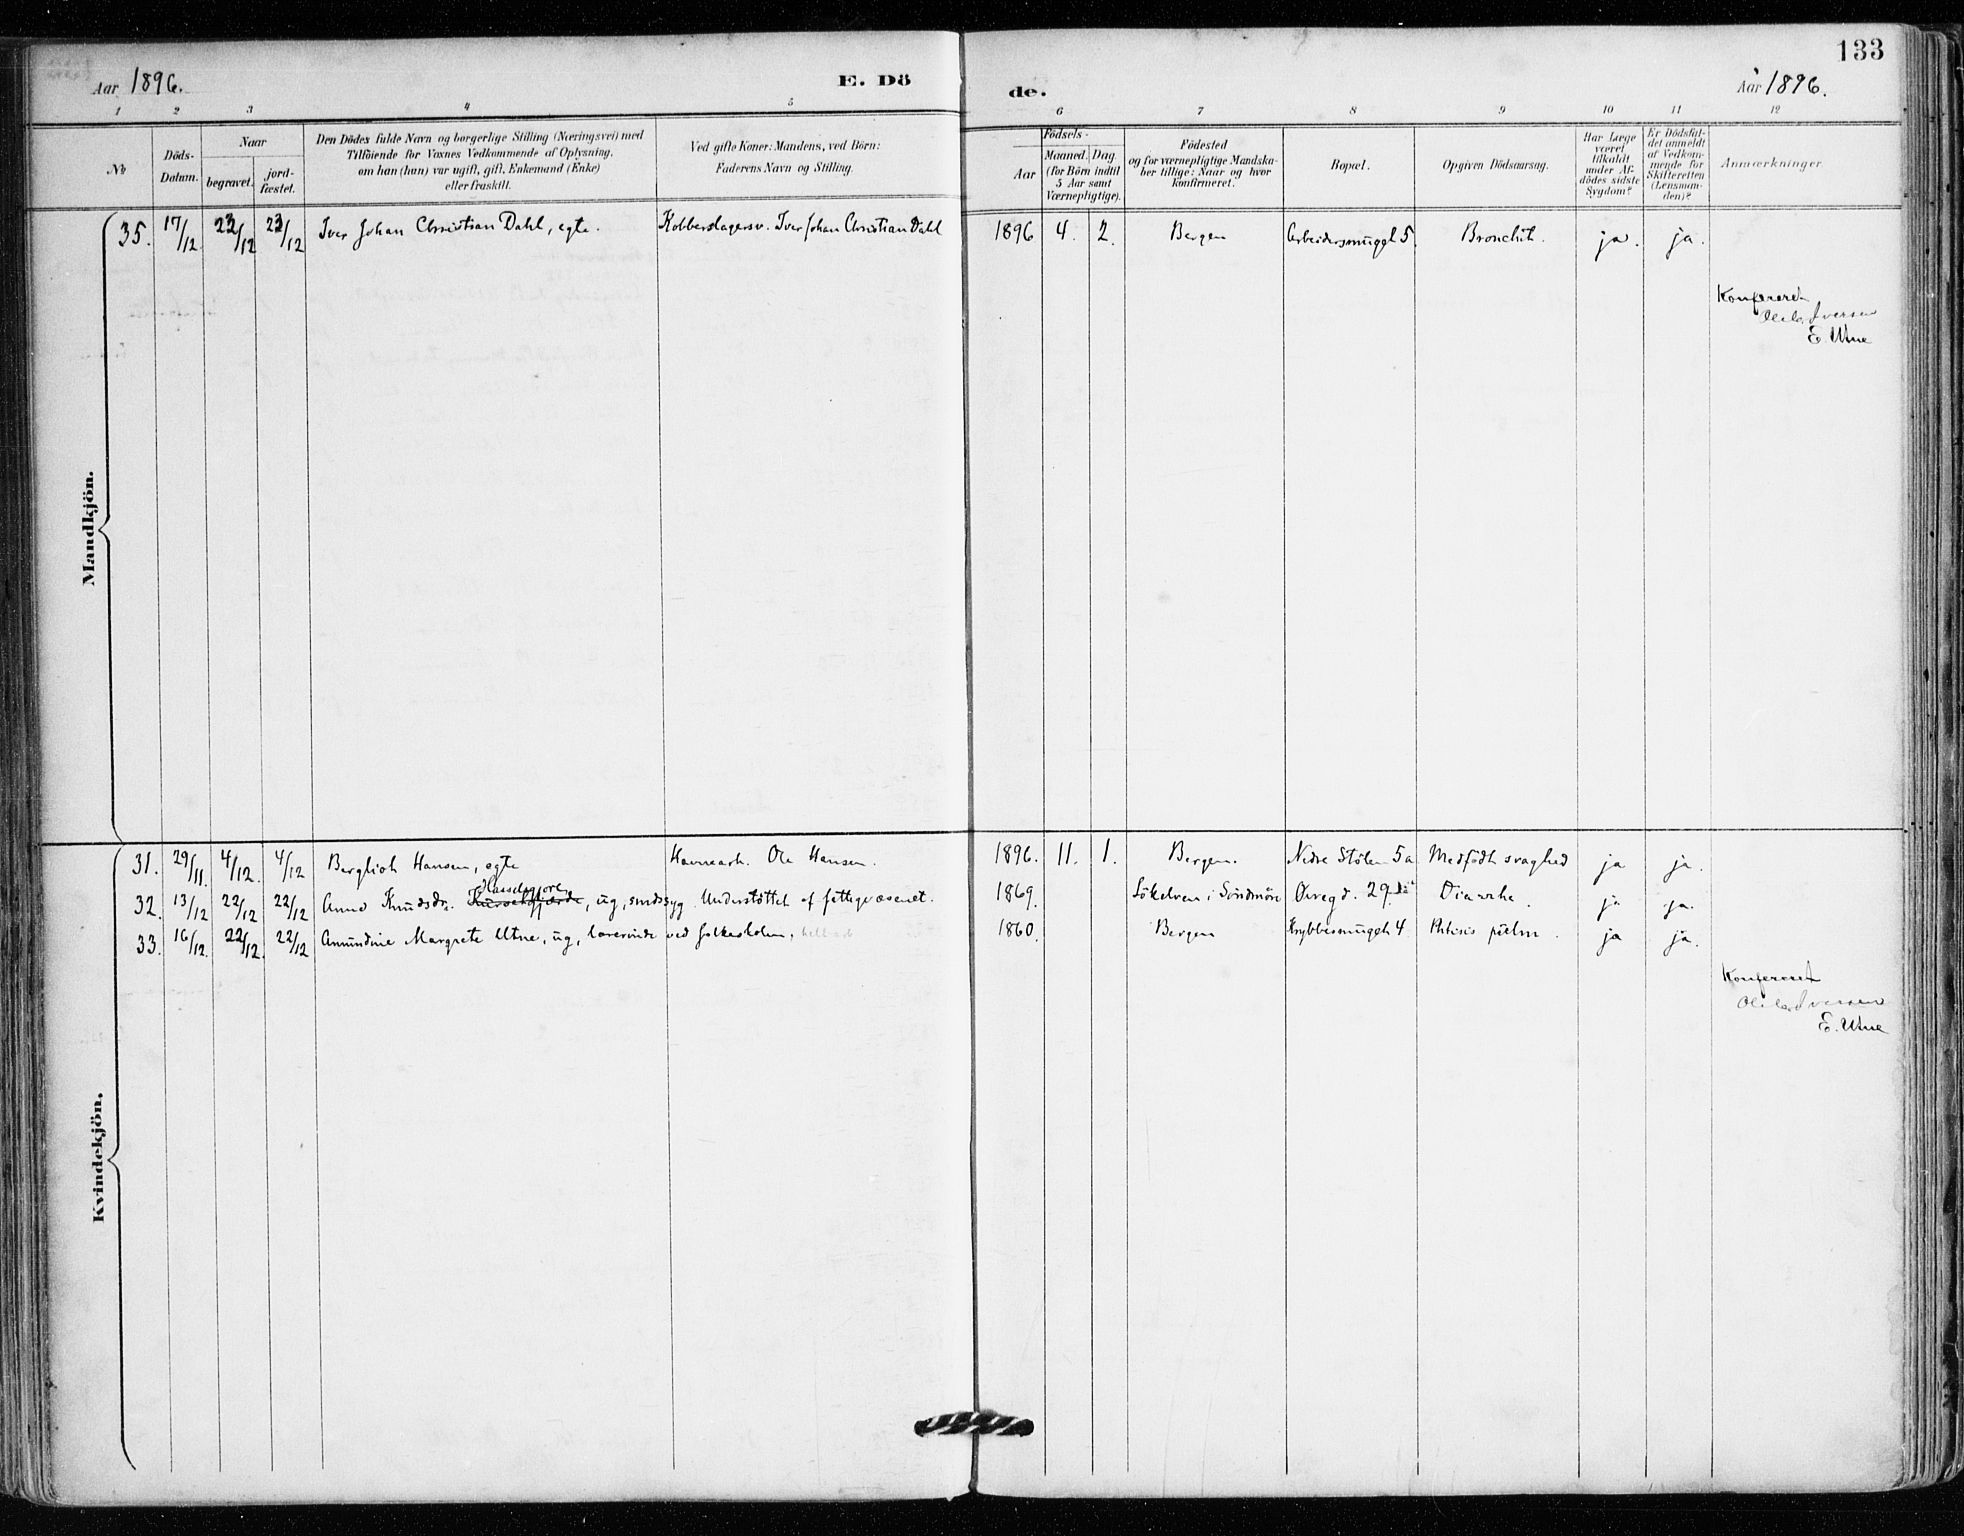 133
Aar 1896. E. Dö de. Aar 1896.
1 2 3 4 5 6 7 8 9 10 11 12
No
Döds-
Datum.
Naar
begravet.
jord-
fæstet.
Den Dödes fulde Navn og borgerlige Stilling (Næringsvei) med
Tilföiende for Voxnes Vedkommende af Oplysning.
om han (hun) var ugift, gift, Enkemand (Enke)
eller fraskilt.
Ved gifte Koner: Mandens, ved Börn:
Faderens Navn og Stilling.
Födsels-
Aar
Maaned. Dag.
(for Börn indtil
5 Aar samt
Værnepligtige).
Födested
og for værnepligtige Mandska-
ber tillige: Naar og hvor
Konfirmeret.
Bopæl.
Opgiven Dödsaarsag.
Har Læge
været
tilkaldt
under Af-
dödes sidste
Sygdom?
Er Dödsfal-
det anmeldt
af Vedkom-
mende for
Skifteretten
(Lensman-
den)?
Anmærkninger.
Mandkjön.
35. 17/12 23/12 23/12 Iver Johan Christian Dahl, egte. Kobberslagersv. Iver Johan Christian Dahl 1896 4. 2. Bergen Arbeidersmuget 5. Bronchit. ja. ja.
Konfereret
Ole Iversen
E. Utne
Kvindekjön.
31. 29/11. 4/12. 4/12 Bergliot Hansen, egte Havnearb. Ole Hansen. 1896. 11. 1. Bergen. Nedre Stölen 5a Medfödt svaghed ja ja.
32. 13/12 22/12 22/12 Anne Knudsdr. , ug, sindssyg. Understöttet af fattigvæsenet. 1869. Sökelven i Söndmöre Övregd. 29 Diarrhe. ja ja.
33. 16/12. 22/12. 22/12 Amundine Margrete Utne, ug, lærerinde ved folkeskolen, 1860. Bergen Krybbesmuget 4 Phtisis pulm. ja ja.
Konfereret
Ole Iversen
E. Utne